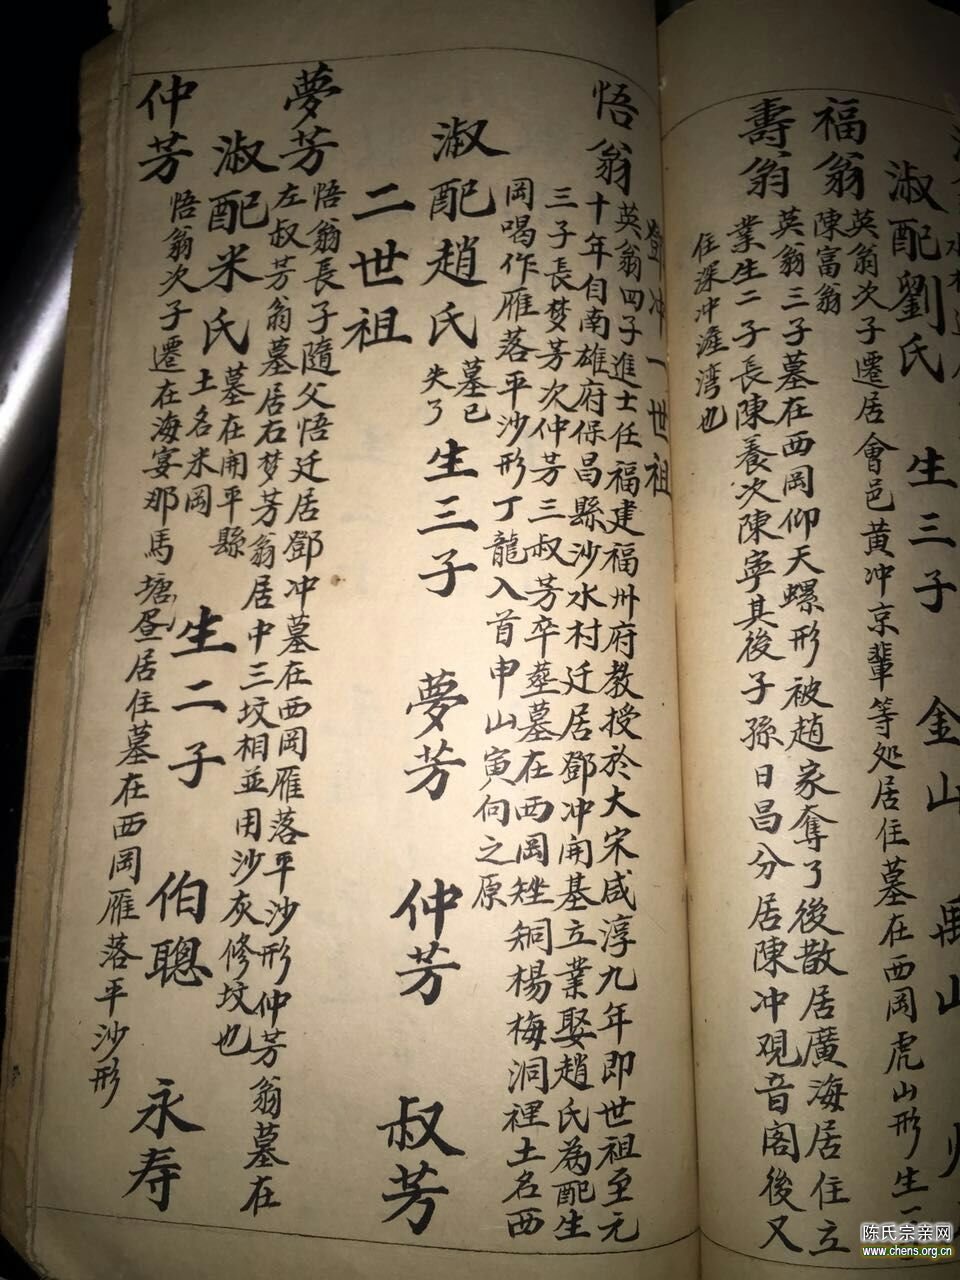 淑配劉氏 生三子 金山 禹山
福翁
陳富翁
英翁次子遷居會邑黃冲京輩等处居住墓在西岡虎山形生
壽翁
英翁三子墓在西岡仰天螺形被趙家奪了後散居廣海居住立
業生二子長陳養次陳寧其後子孫日昌分居陳冲观音阁後又
住深冲漄湾也
鄧冲一世祖
悟翁
英翁四子進士任福建福卅府教授於大宋咸淳九年即世祖至元
十年自南雄府保昌縣沙水村迁居鄧冲開基立業娶趙氏為配生
三子長梦芳次仲芳三叔芳卒塟墓在西岡矬硐楊梅洞裡土名西
岡喝作雁落平沙形丁龍入首申山寅向之原
淑配趙氏 墓已失了 生三子 夢芳 仲芳 叔芳
二世祖
夢芳
悟翁長子隨父悟迁居鄧冲墓在西岡雁落平沙形仲芳翁墓在
左叔芳翁墓居右梦芳翁居中三坟相並用沙灰修坟也
淑配米氏 墓在開平縣土名米岡 生二子 伯聰 永寿
仲芳
悟翁次子遷在海宴那馬塘昼居住墓在西岡雁落平沙形
陈氏宗亲网
www.chens.org.cn